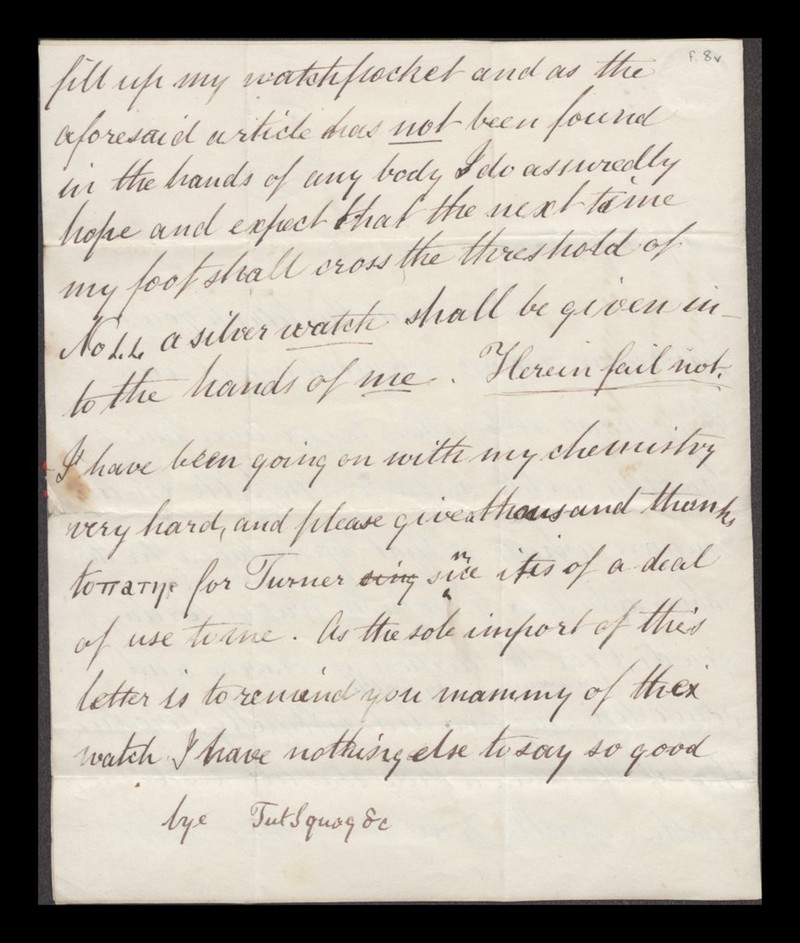 f. 8v
fill up my watchpocket and as the
aforesaid article has not been found
in the hands of any body I do assuredly
hope and expect that the next time
my foot shall cross the threshold of
No a silver watch shall be given in-
to the hands of me. Herein fail not.
I have been going on with my chemistry
very hard, and please give a thousand thanks
to πατηρ for Turner sing since it is of a deal
of use to me. As the sole import of this
letter is to remind you mammy of the
watch I have nothing else to say so good
bye Tut Squog &c